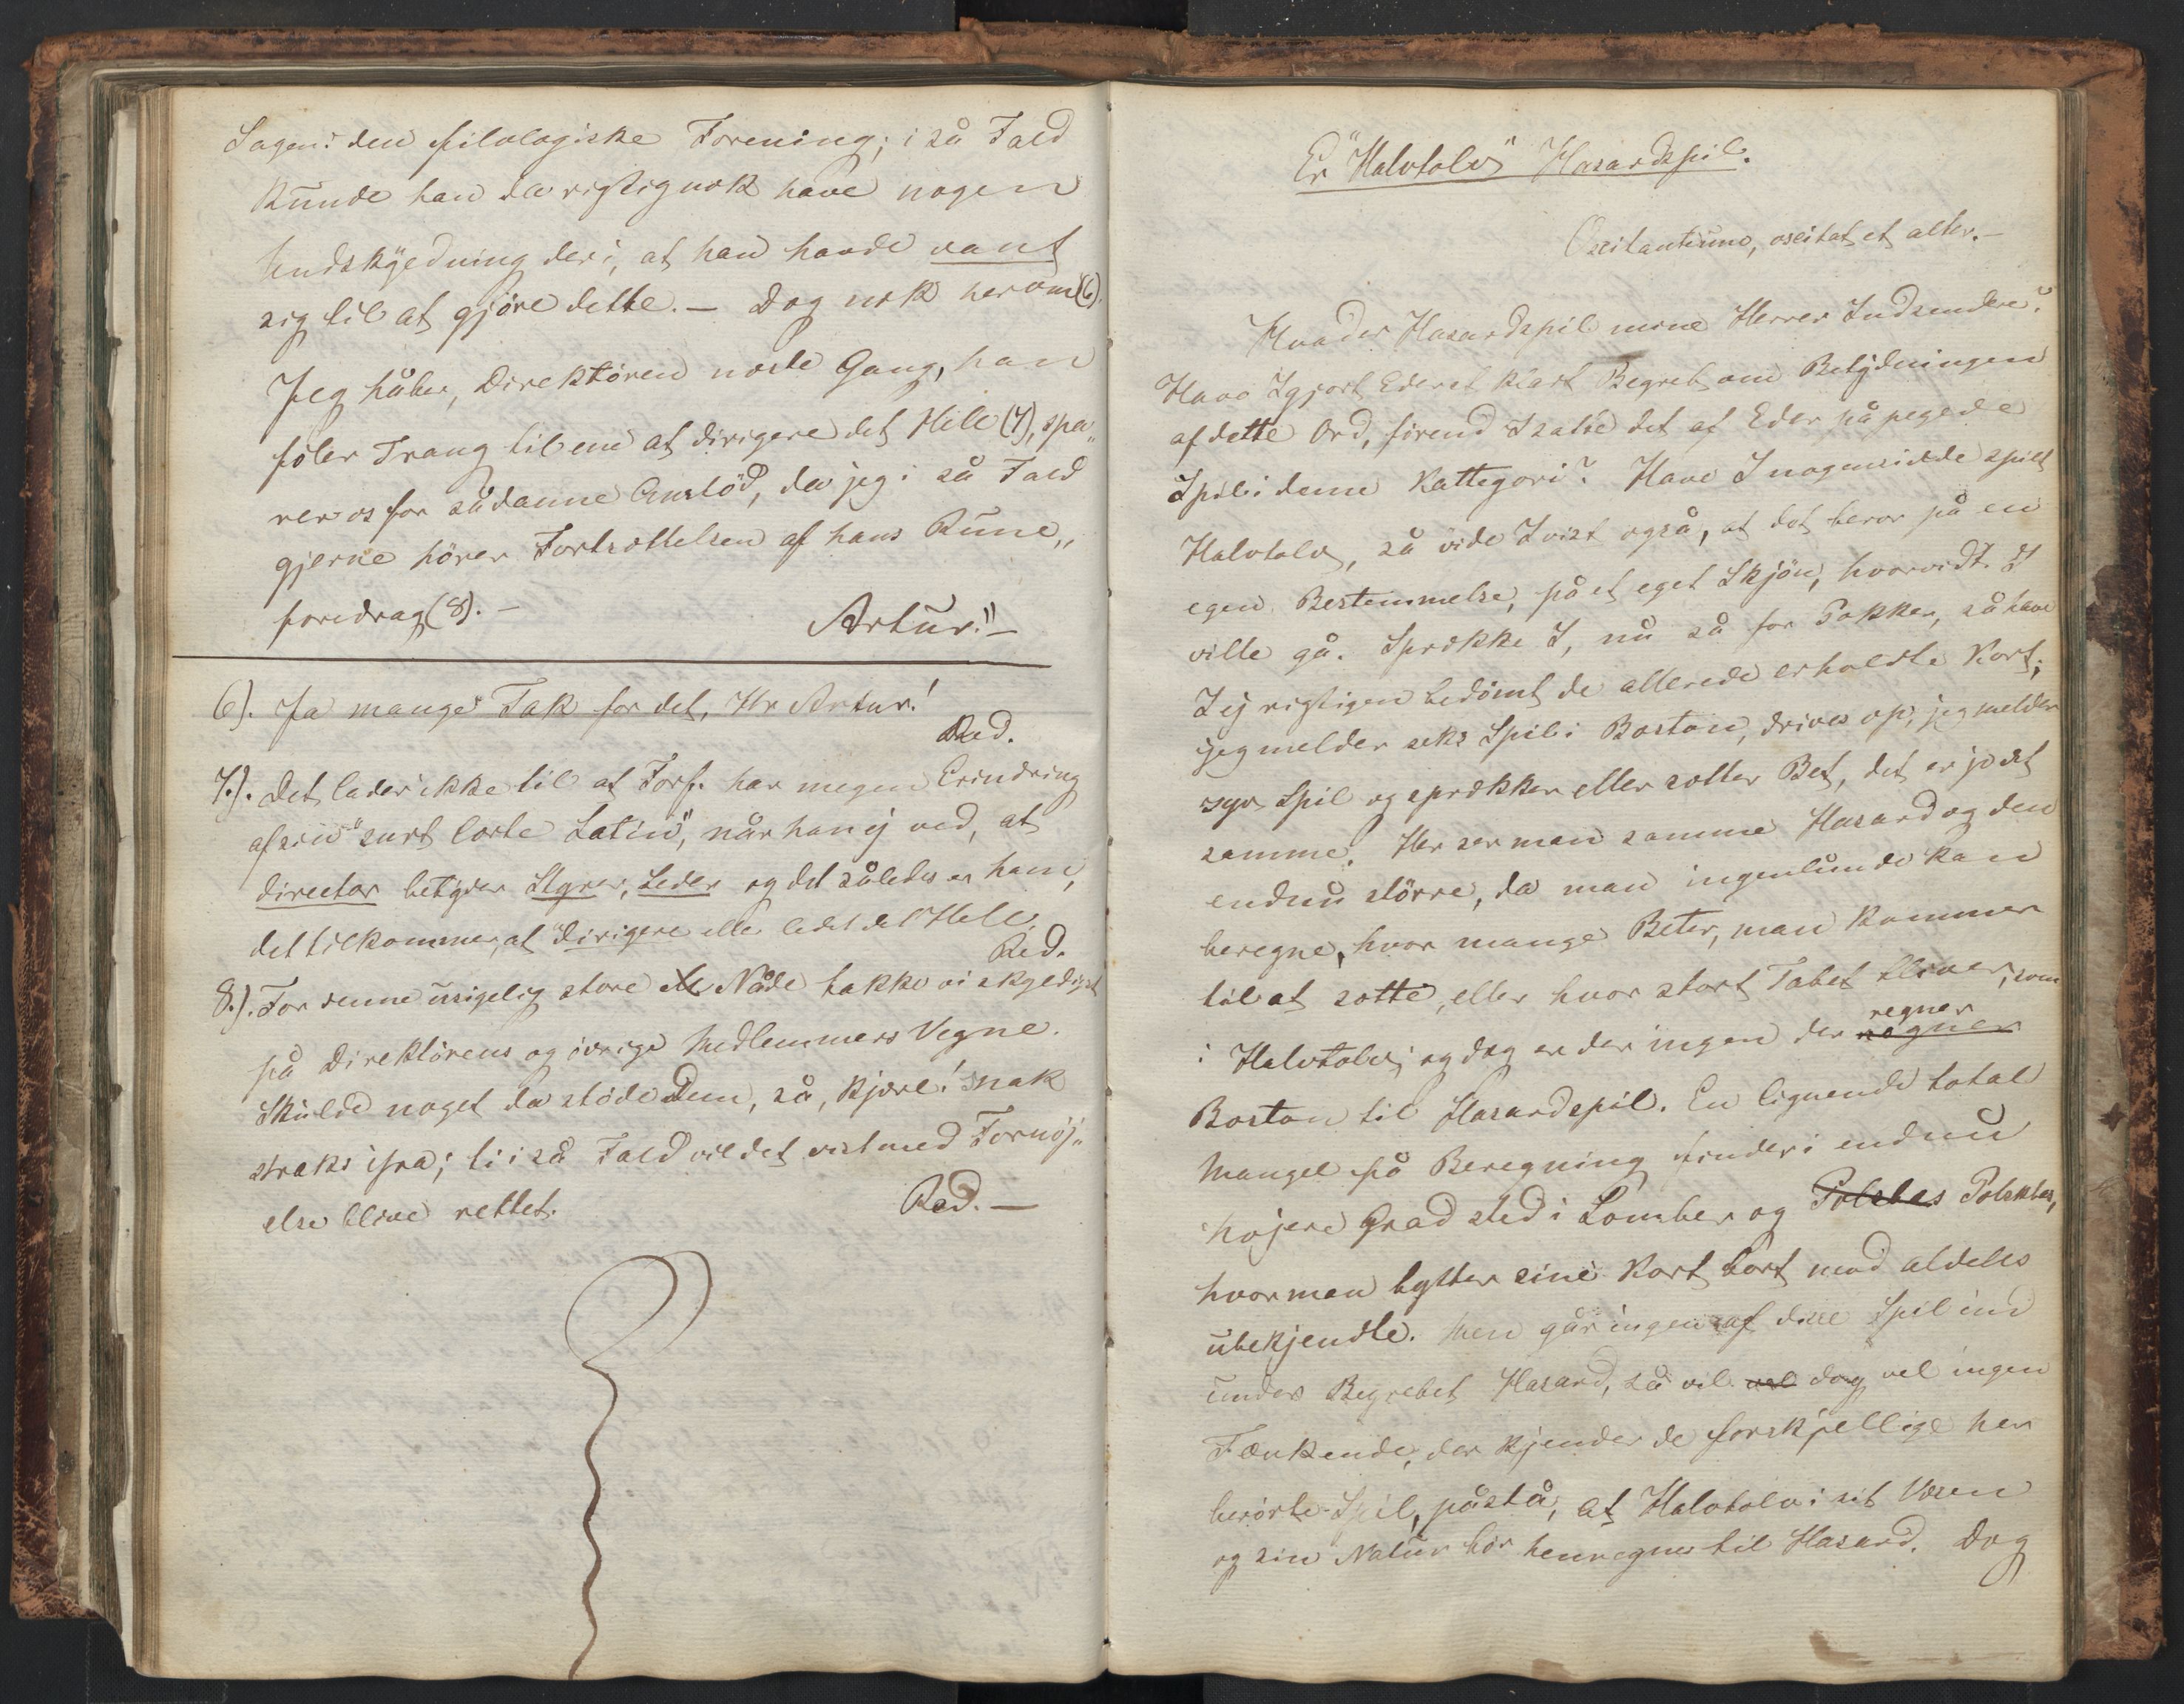 Sagen i den filologiske Forening; i så Fald
kunde han da rigtignok have nogen
Undskyldning deri, at han havde vant
sig til at gjöre dette. — Dog nok herom (6).
Jeg håber, Direktören næste Gang, han
föler Trang til en at dirigere det Hele (7), spa„
rer os for sådanne Anstöd, da jeg i så Fald
gjerne hörer Fortsættelsen af hans Rune„
foredrag (8). —
Artur." —
6). Ja mange Tak for det, Hr Artur!
Red.
7.). Det lader ikke til at Forf. har megen Erindring
af sin "surt lærte Latin", når han ej ved, at
director betyder Styrer, Leder og det således er ham,
det tilkommer, at "dirigere elle lede det Hele.
Red.
8.). For denne usigelig store Nåde takke vi skyldigst
på Direktörens og övrige Medlemmers Vegne.
Skulde noget da stöde Dem, så, kjære! snak
straks ifra; ti i så Fald vil det vist med Fornöj„
else blive rettet.
Red. —
Er "Halvtolv" Hasardspil.
Oscitantium, oscitat et alter. —
Hvad er Hasardspil mine Herrer Indsendere?
Have I gjort Eder et klart Begreb om Betydningen
af dette Ord, förend I satte det af Eder påpegede
Spil i denne Kattegori? Have I nogensinde spilt
Halvtolv, så vide I vist også, at det beror på en
egen Bestemmelse, på et eget Skjön, hvorvidt I
ville gå. Sprække I, nu så for Pokker, så have
I ej rigtigen bedömt de allerede erholdte Kort;
jeg melder seks Spil i Boston, drives op, jeg melder
syv Spil og sprækker eller sætter Bet, det er jo det
samme. Her ser man samme Hasard og den
endnu större, da man ingenlunde kan
beregne, hvor mange Beter, man kommer
til at sætte, eller hvor stort Tabet bliver, som
i Halvtolv; og dog er der ingen der regner
Boston til Hasardspil. En lignende total
Mangel på Beregning finder i endnu
höjere Grad sted i Lomber og Polskbas,
hvor man bytter sine Kort bort mod aldeles
ubekjendte. Men går ingen af disse Spil ind
under Begrebet Hasard, så vil dog vel ingen
Tænkende, der kjender de forskjellige her
berörte Spil, påstå, at Halvtolv i sit Væsen
og sin Natur bör henregnes til Hasard. Dog